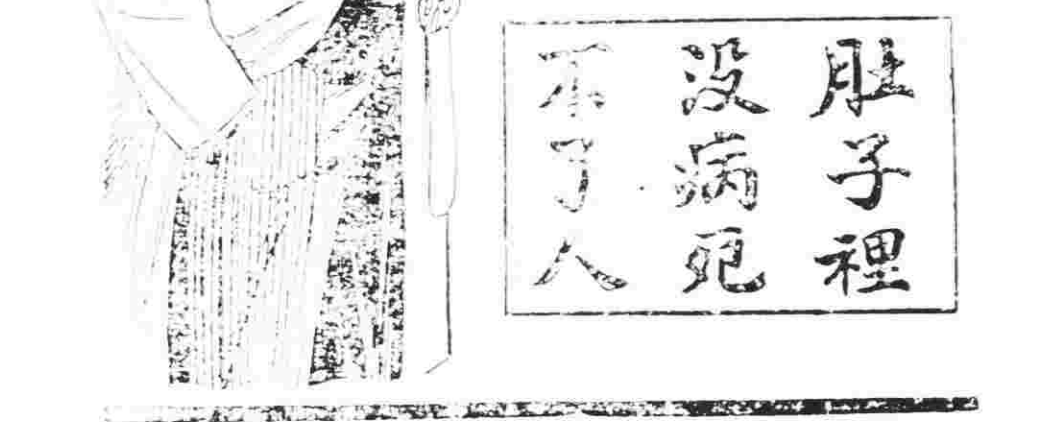 肚子裡
没病死
不了人